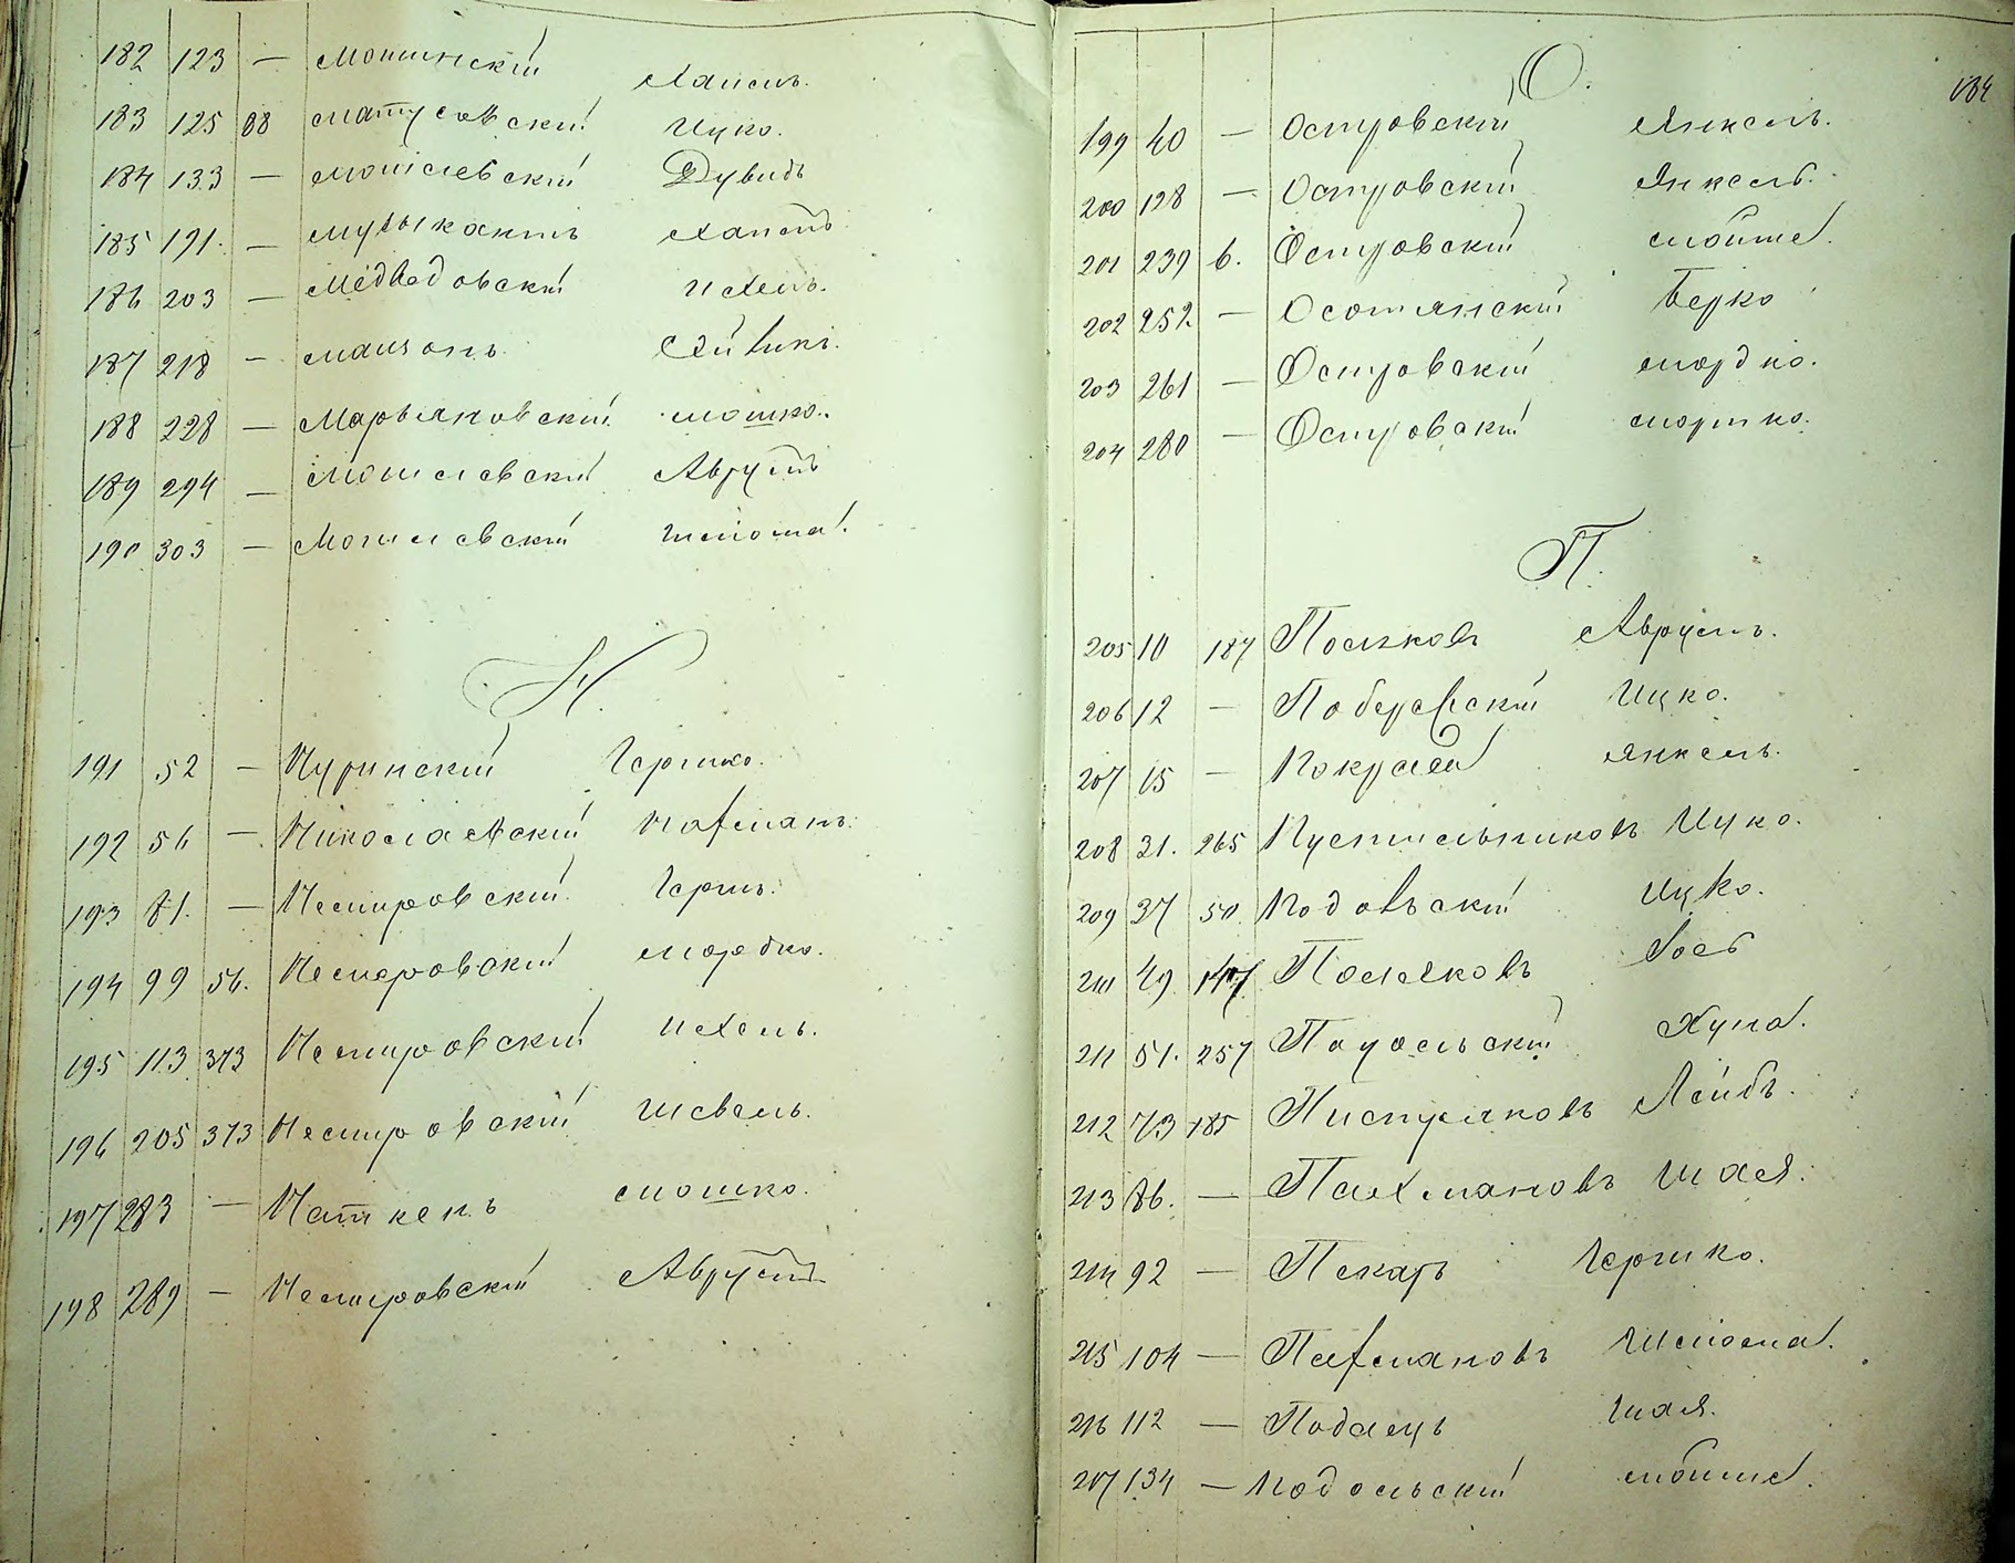 182 123 — Мошинскій Хаимъ.
183 125 88 Матусовскій Ицко.
184 133 — Могилевскій Дувидъ
185 191. — Музыкантъ Хаимъ
186 203 — Медведовскій Ихель.
187 218 — Мацонъ
188 228 — Марьяновскій Мошко.
189 294 — Могилевскій Аврумъ
190 303 — Могилевскій Шлиома.
Н.
191 52 — Нуринскій Гершко.
192 56 — Николаевскій Нафманъ.
193 81. — Немировскій Гершъ.
194 99 56. Немеровскій Мордко.
195 113 373 Немировскій Ихель.
196 205 373 Немировскій Шевель.
197 283 — Наткенъ Мошко.
198 289 — Немировскій Аврумъ
184
О.
199 40 — Островскій Янкель.
200 128 — Островскій Янкель.
201 239 6. Островскій Мойше.
202 252. — Осотянскій Берко
203 261 — Островскій Мордко.
204 280 — Островскій Мортко.
П.
205 10 187 Поляковъ Аврумъ.
206 12 — Побережскій Ицко.
207 15 — Покраса Янкель.
208 31. 265 Пустильниковъ Ицко.
209 37 50 Подовьскій Ицко.
210 49 147 Поляковъ Іосъ
211 51. 257 Подольскій Хуна.
212 73 185 Пистряковъ Лейбъ.
213 86. — Пахмановъ Шая.
214 92 — Пекаръ Гершко.
215 104 — Пафмановъ Шлиома.
216 112 — Подаецъ Шая.
217 134 — Подольскій Мойше.